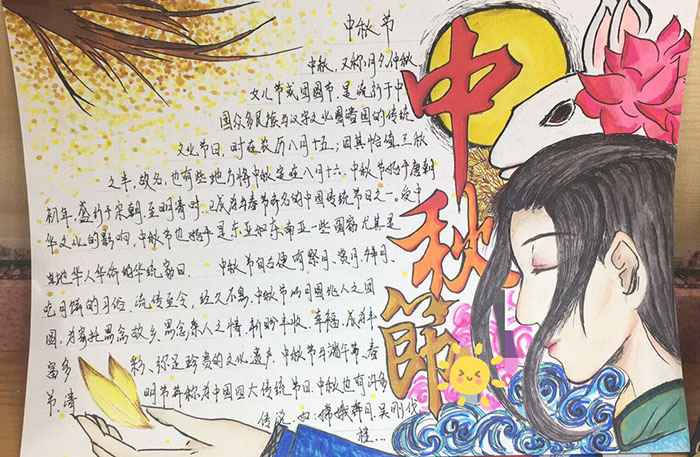 中秋节
中秋，又称月夕、仲秋
女儿节或团圆节，是流行于中
国众多民族与汉字文化圈诸国的传统
文化节日，时在农历八月十五；因其恰值三秋
之半，故名，也有些地方将中秋定在八月十六。中秋节始于唐朝
初年，盛行于宋朝，至明清时，已成为与春节齐名的中国传统节日之一。受中
华文化的影响，中秋节也是东亚和东南亚一些国家尤其是
当地华人华侨的传统节日。中秋节自古便有祭月、赏月、拜月、
吃月饼的习俗，流传至今，经久不息。中秋节以月圆兆人之团
圆，为寄托思念故乡，思念亲人之情，祈盼丰收、幸福，成为丰
富多彩、弥足珍贵的文化遗产。中秋节与端午节、春
节、清明节并称为中国四大传统节日。中秋也有许多
传说，如：嫦娥奔月、吴刚伐
桂...
中秋節